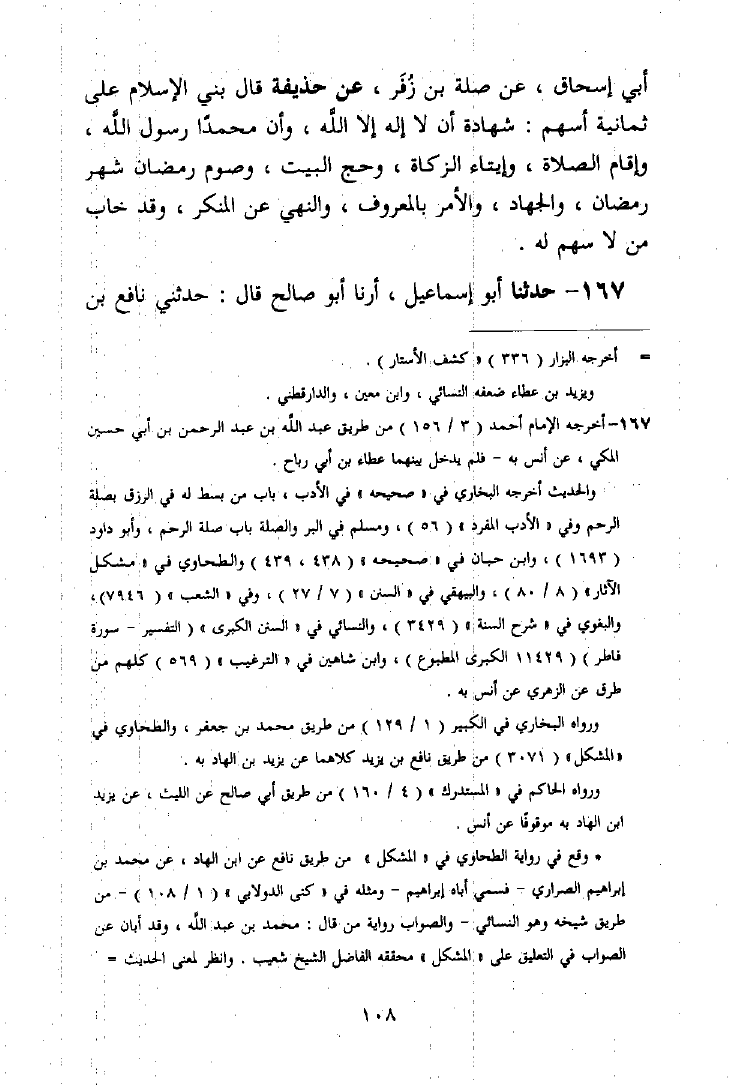 أبي إسحاق ، عن صلة بن زُفَر ، عن حذيفة قال بني الإسلام على
ثمانية أسهم : شهادة أن لا إله إلا اللَّه ، وأن محمدًا رسول اللَّه ،
وإقام الصلاة ، وإيتاء الزكاة ، وحج البيت ، وصوم رمضان شهر
رمضان ، والجهاد ، والأمر بالمعروف ، والنهي عن المنكر ، وقد خاب
من لا سهم له .
١٦٧- حدثنا أبو إسماعيل ، أرنا أبو صالح قال : حدثني نافع بن
= أخرجه البزار ( ٣٣٦ ) « كشف الأستار ) .
ويزيد بن عطاء ضعفه النسائي ، وابن معين ، والدارقطني .
١٦٧-أخرجه الإمام أحمد ( ٣ / ١٥٦ ) من طريق عبد اللَّه بن عبد الرحمن بن أبي حسين
المكي ، عن أنس به - فلم يدخل بينهما عطاء بن أبي رباح .
والحديث أخرجه البخاري في « صحيحه » في الأدب ، باب من بسط له في الرزق بصلة
الرحم وفي « الأدب المفرد » ( ٥٦ ) ، ومسلم في البر والصلة باب صلة الرحم ، وأبو داود
( ١٦٩٣ ) ، وابن حبان في « صحيحه » ( ٤٣٨ ، ٤٣٩ ) والطحاوي في « مشكل
الآثار» ( ٨ / ٨٠ ) ، والبيهقي في « السنن » ( ٧ / ٢٧ ) ، وفي « الشعب » ( ٧٩٤٦)،
والبغوي في « شرح السنة » ( ٣٤٢٩ ) ، والنسائي في « السنن الكبرى » ( التفسير - سورة
فاطر ) ( ١١٤٢٩ الكبرى المطبوع ) ، وابن شاهين في « الترغيب » ( ٥٦٩ ) كلهم من
طرق عن الزهري عن أنس به .
ورواه البخاري في الكبير ( ١ / ١٢٩ ) من طريق محمد بن جعفر ، والطحاوي في
«المشكل» ( ٣٠٧١ ) من طريق نافع بن يزيد كلاهما عن يزيد بن الهاد به .
ورواه الحاكم في « المستدرك » ( ٤ / ١٦٠ ) من طريق أبي صالح عن الليث ، عن يزيد
ابن الهاد به موقوفًا عن أنس .
* وقع في رواية الطحاوي في « المشكل » من طريق نافع عن ابن الهاد ، عن محمد بن
إبراهيم الصراري - فسمي أباه إبراهيم - ومثله في « كنى الدولابي » ( ١ / ١٠٨ ) - من
طريق شيخه وهو النسائي - والصواب رواية من قال : محمد بن عبد اللَّه ، وقد أبان عن
الصواب في التعليق على « المشكل » محققه الفاضل الشيخ شعيب . وانظر لمعنى الحديث =
١٠٨